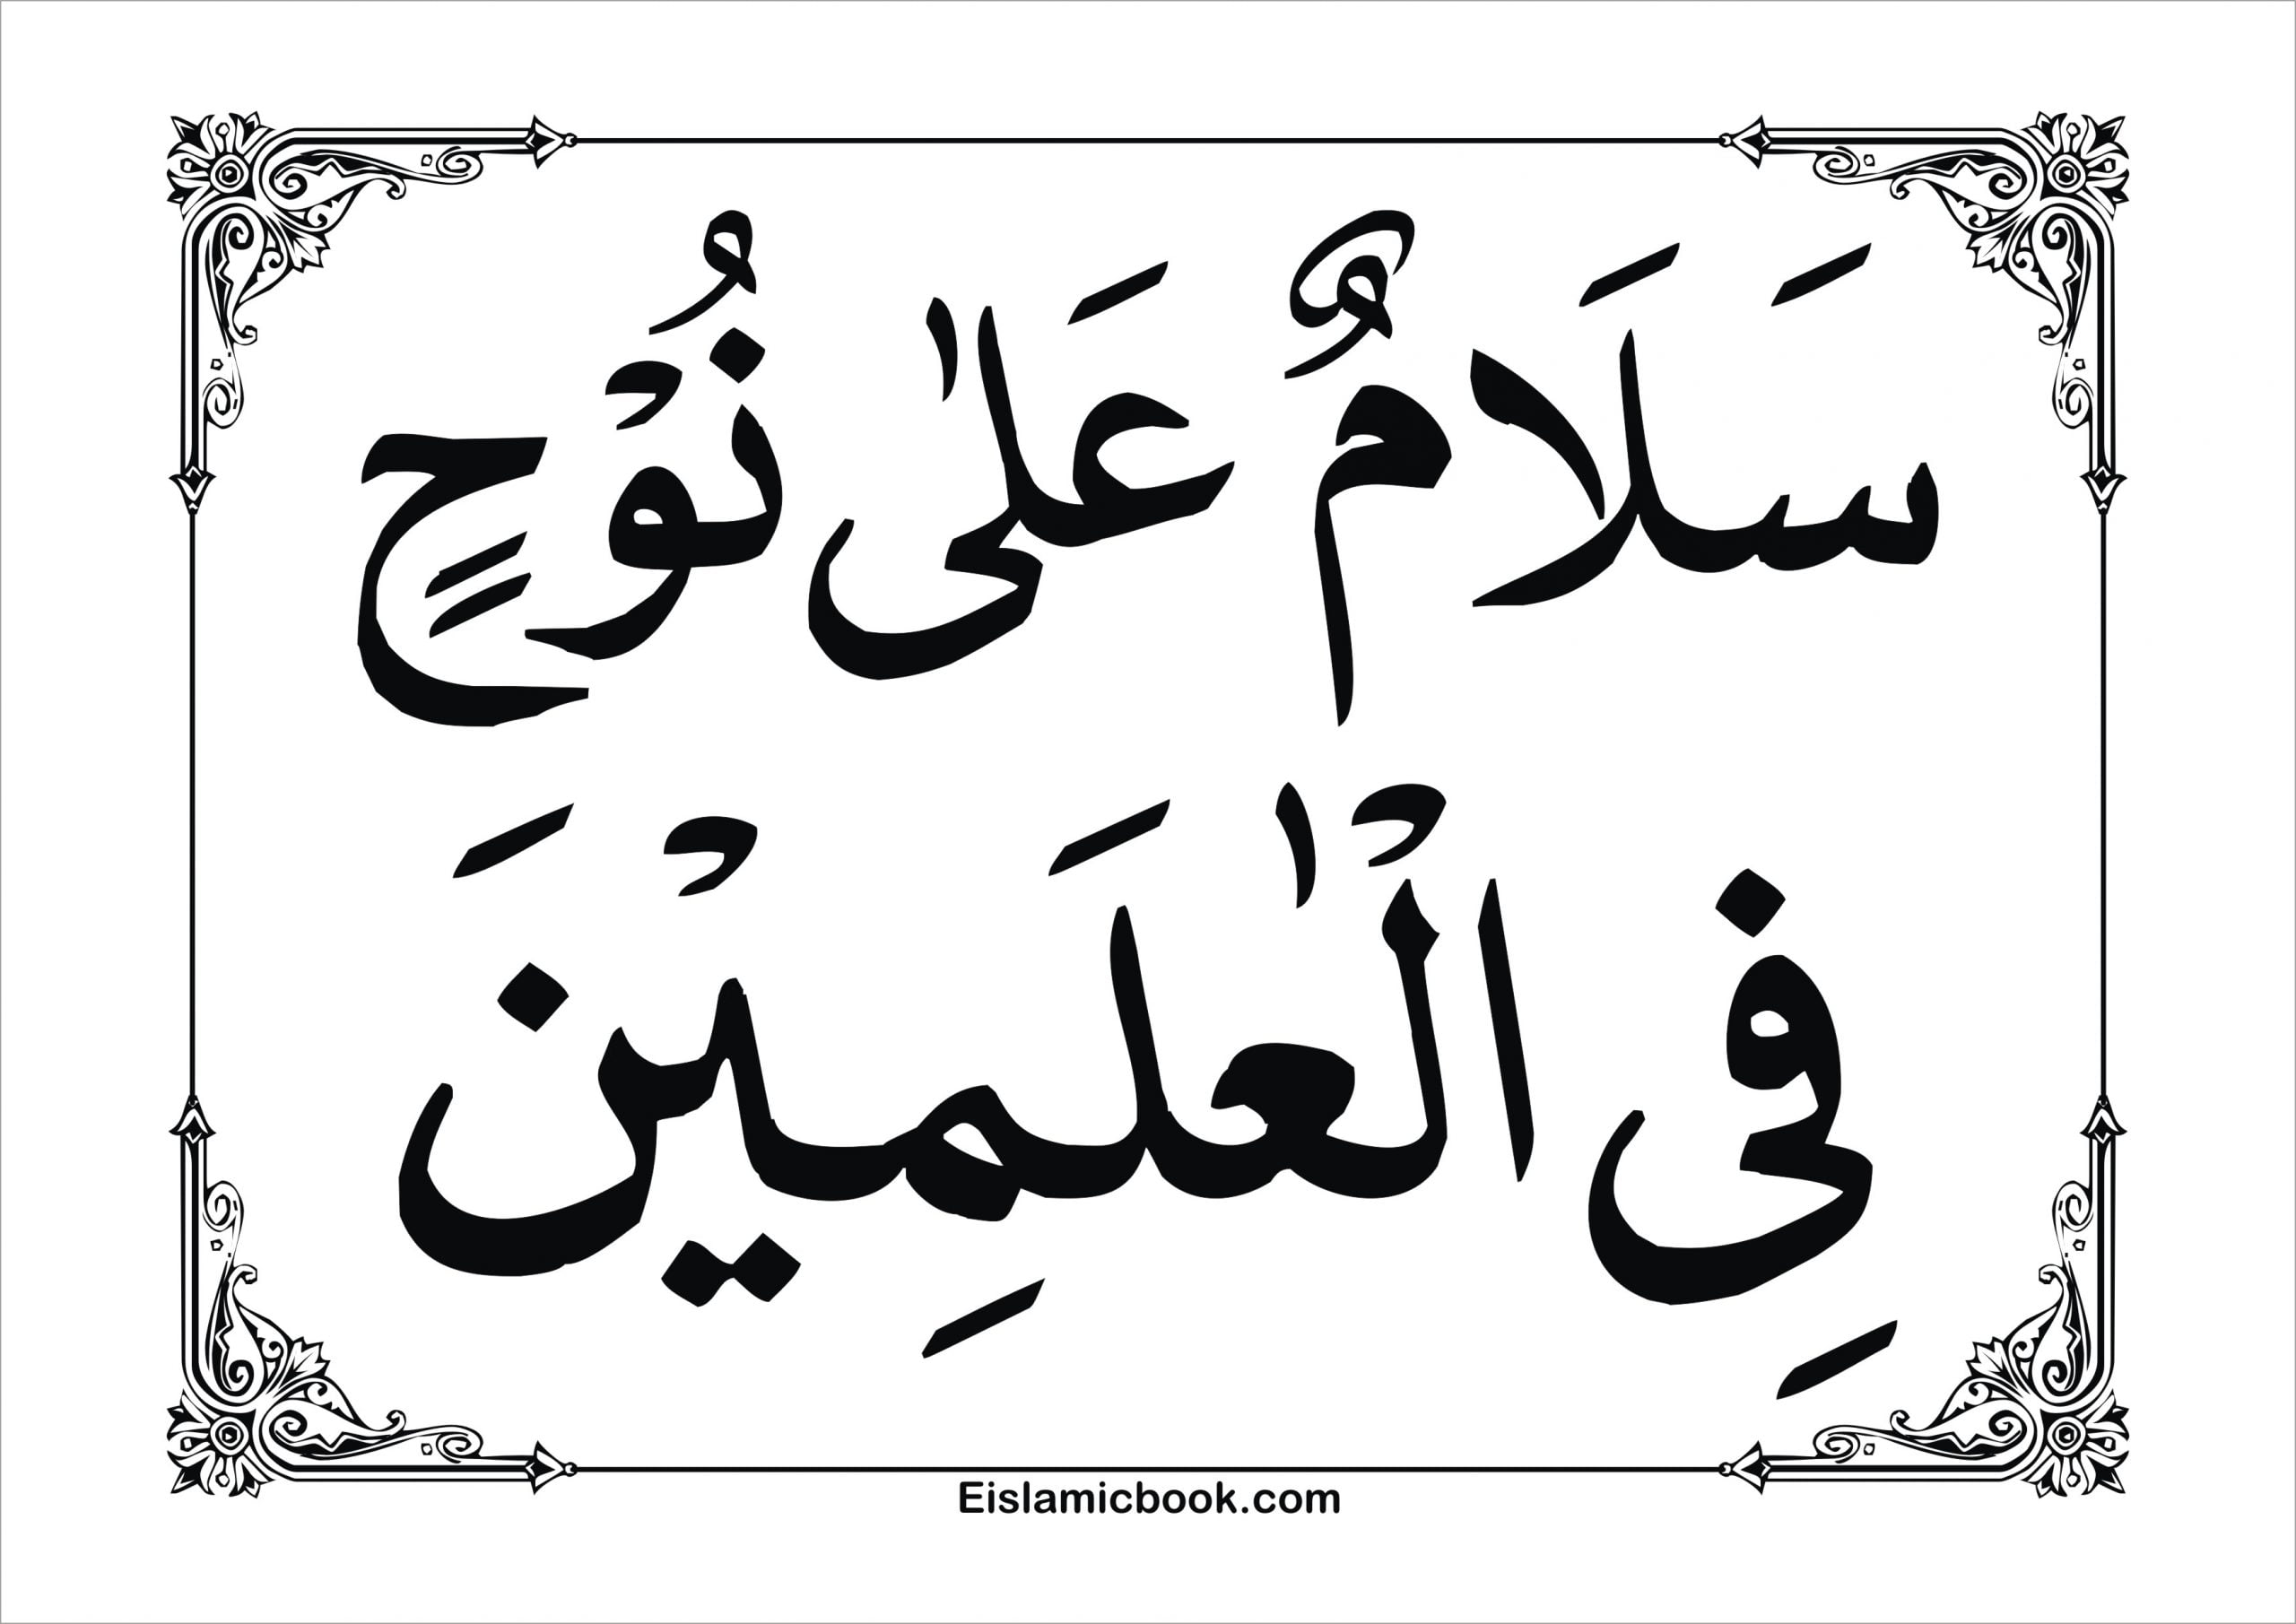 سَلَامٌ عَلٰى نُوْحٍ
فِى الْعٰلَمِيْنَ
Eislamicbook.com